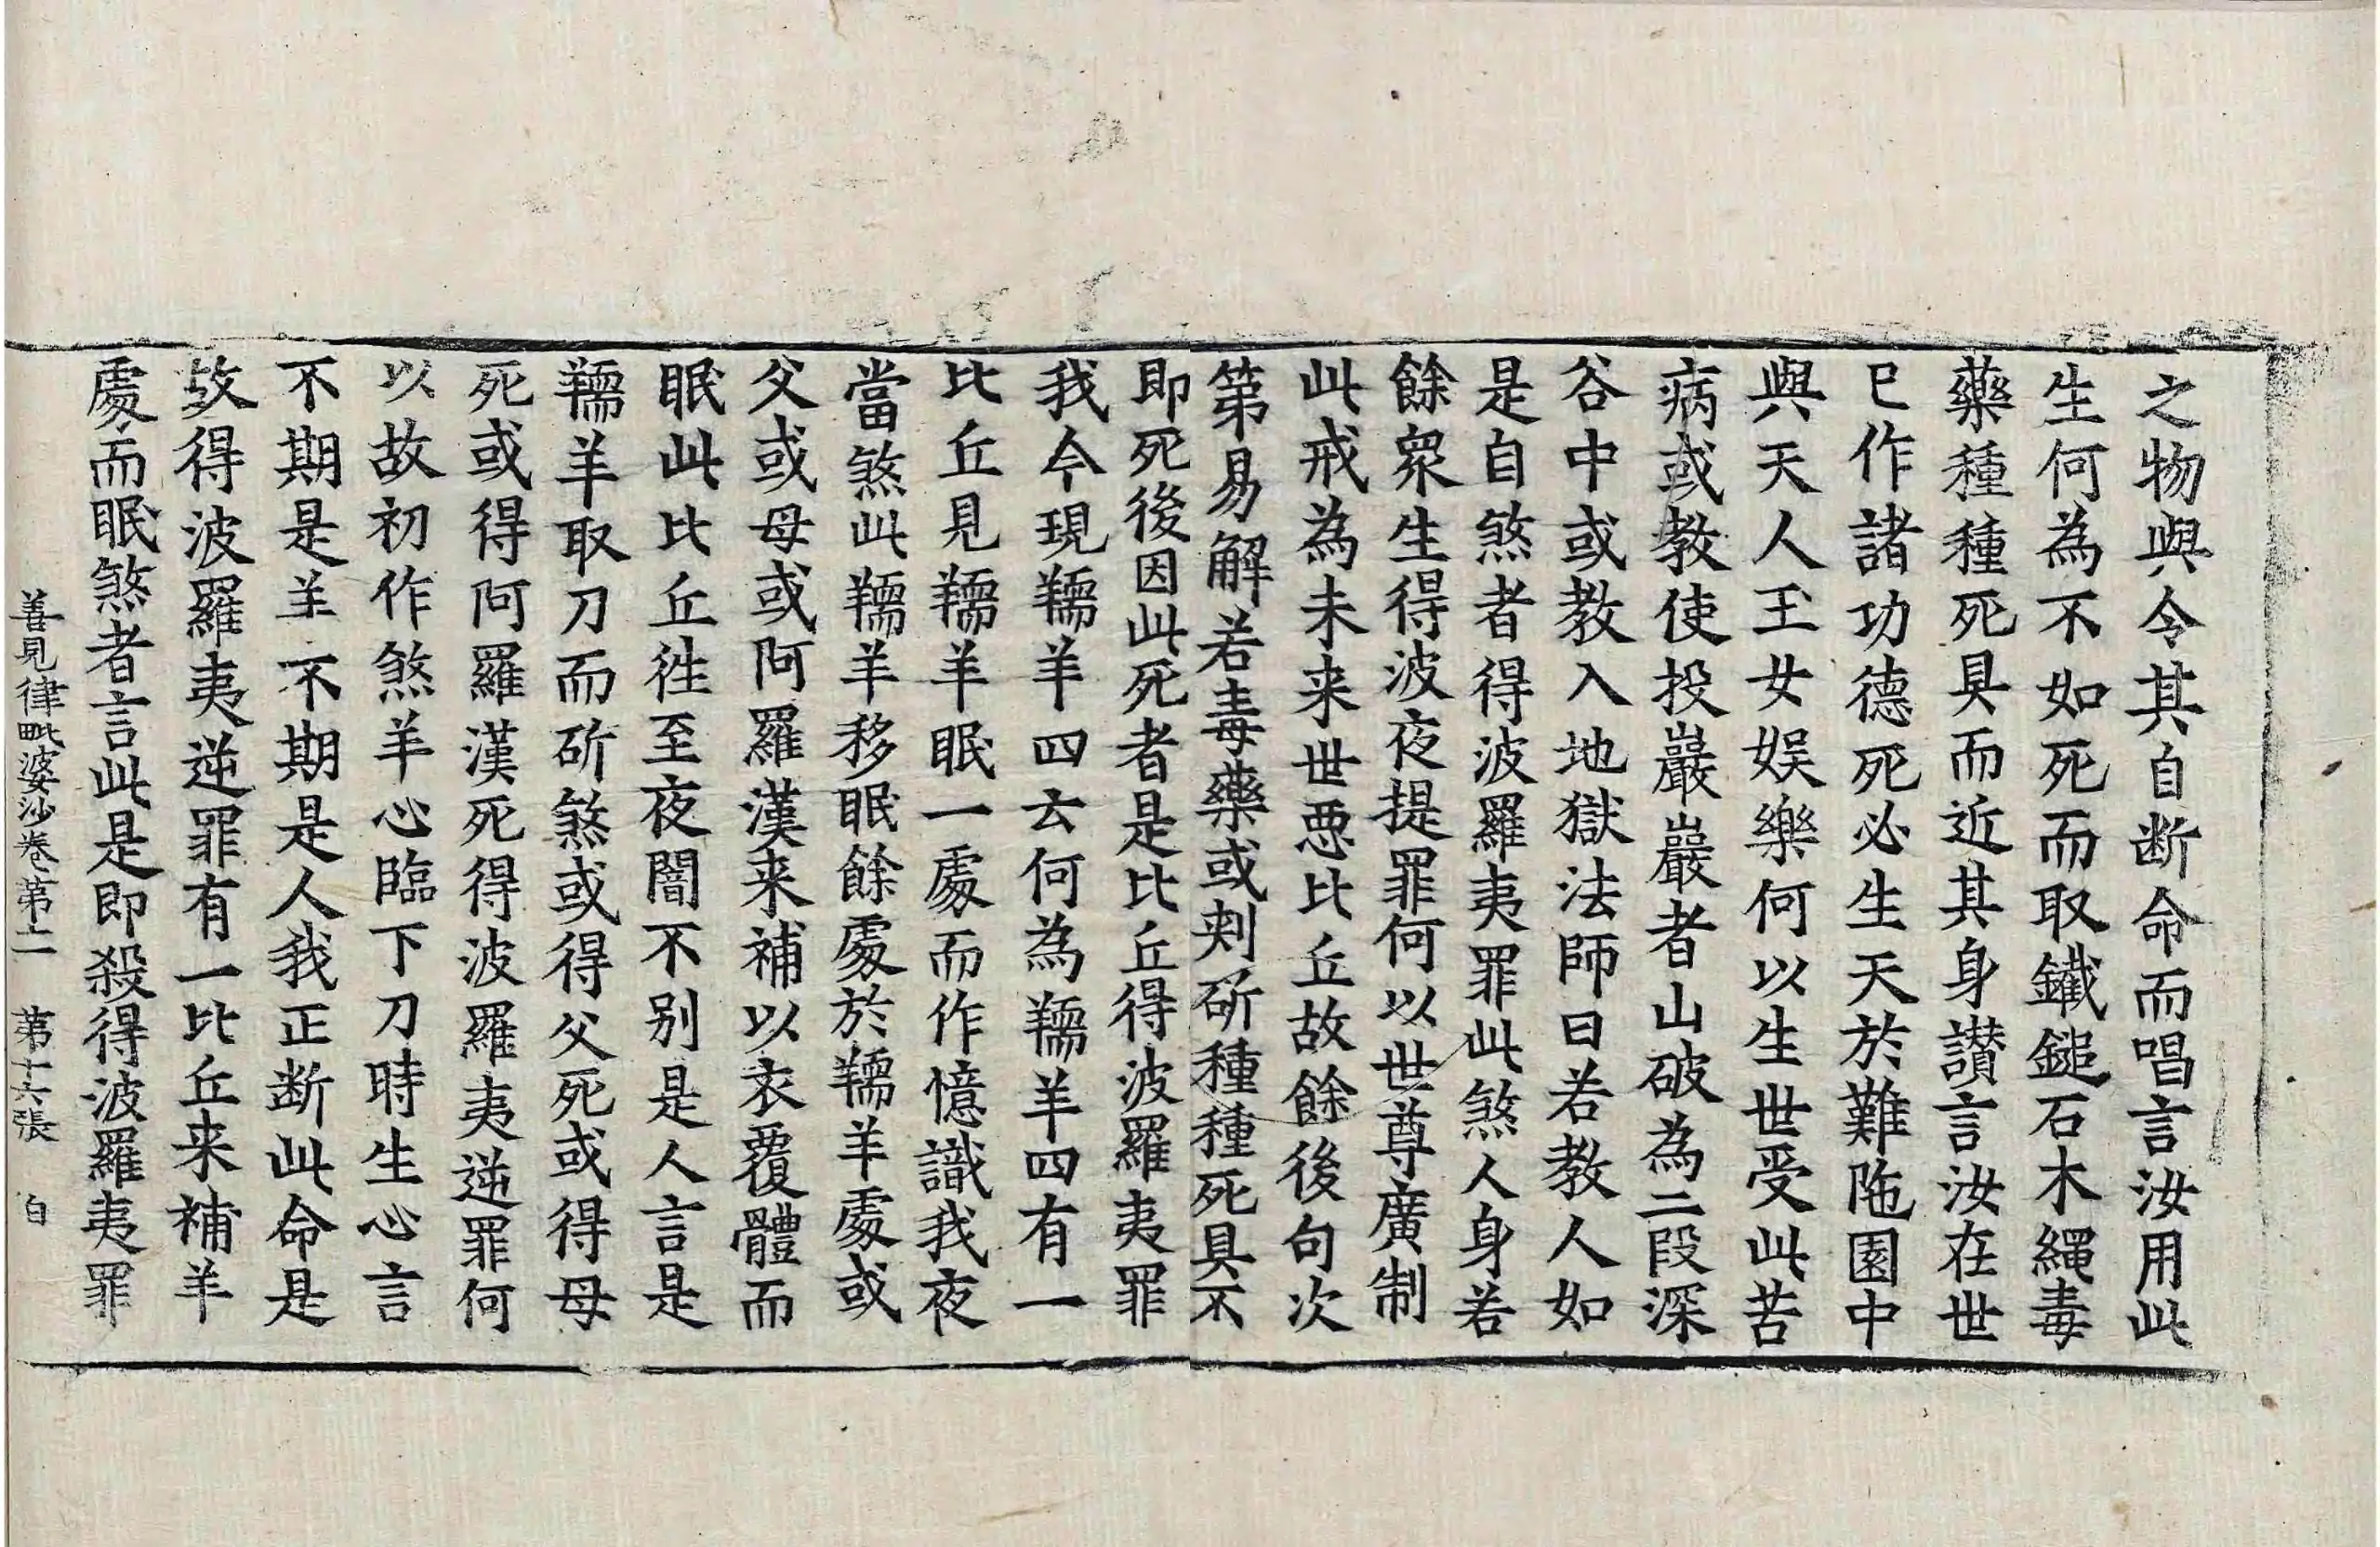 之物與令其自断命而唱言汝用此
生何為不如死而取鐵鎚石木繩毒
藥種種死具而近其身讃言汝在世
已作諸功德死必生天於難陁園中
與天人王女娱樂何以生世受此苦
病或教使投巖巖者山破為二段深
谷中或教入地獄法師曰若教人如
是自煞者得波羅夷罪此煞人身若
餘衆生得波夜提罪何以世尊廣制
此戒為未来世惡比丘故餘後句次
第易解若毒藥或刾斫種種死具不
即死後因此死者是比丘得波羅夷罪
我今現羺羊四云何為羺羊四有一
比丘見羺羊眠一處而作憶識我夜
當煞此羺羊移眠餘處於羺羊處或
父或母或阿羅漢来補以衣覆體而
眠此比丘徃至夜闇不別是人言是
羺羊取刀而斫煞或得父死或得母
死或得阿羅漢死得波羅夷逆罪何
以故初作煞羊心臨下刀時生心言
不期是羊不期是人我正断此命是
故得波羅夷逆罪有一比丘来補羊
處而眠煞者言此是即殺得波羅夷罪
善見律毗婆沙卷第十一 第十六張 白